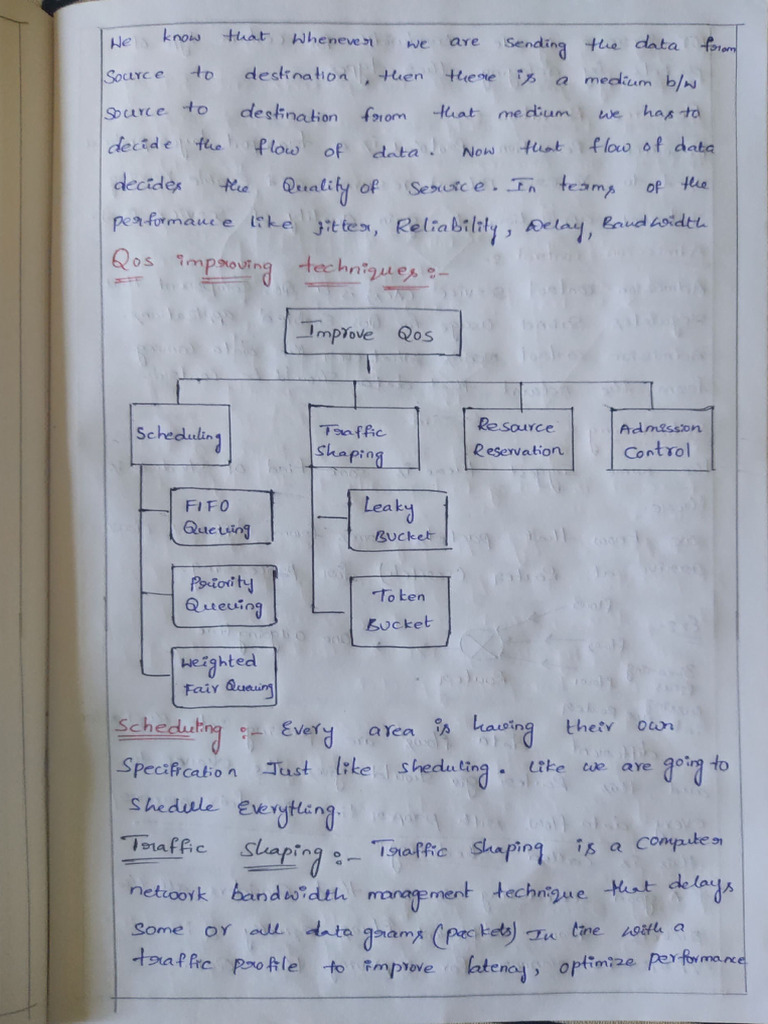 We know that whenever we are sending the data from
Source to destination, then there is a medium b/w
source to destination from that medium we has to
decide the flow of data. Now that flow of data
decides the Quality of Service. In terms of the
performance like jitter, Reliability, Delay, Bandwidth
Qos improving techniques :-
Improve Qos
Scheduling
Traffic
Shaping
Resource
Reservation
Admission
Control
FIFO
Queuing
Priority
Queuing
Weighted
Fair Queuing
Leaky
Bucket
Token
Bucket
Scheduling :- Every area is having their own
Specification Just like sheduling. Like we are going to
Shedule Everything.
Traffic Shaping :- Traffic Shaping is a computer
network bandwidth management technique that delays
Some or all data grams (packets) In line with a
traffic profile to improve latency, optimize performance